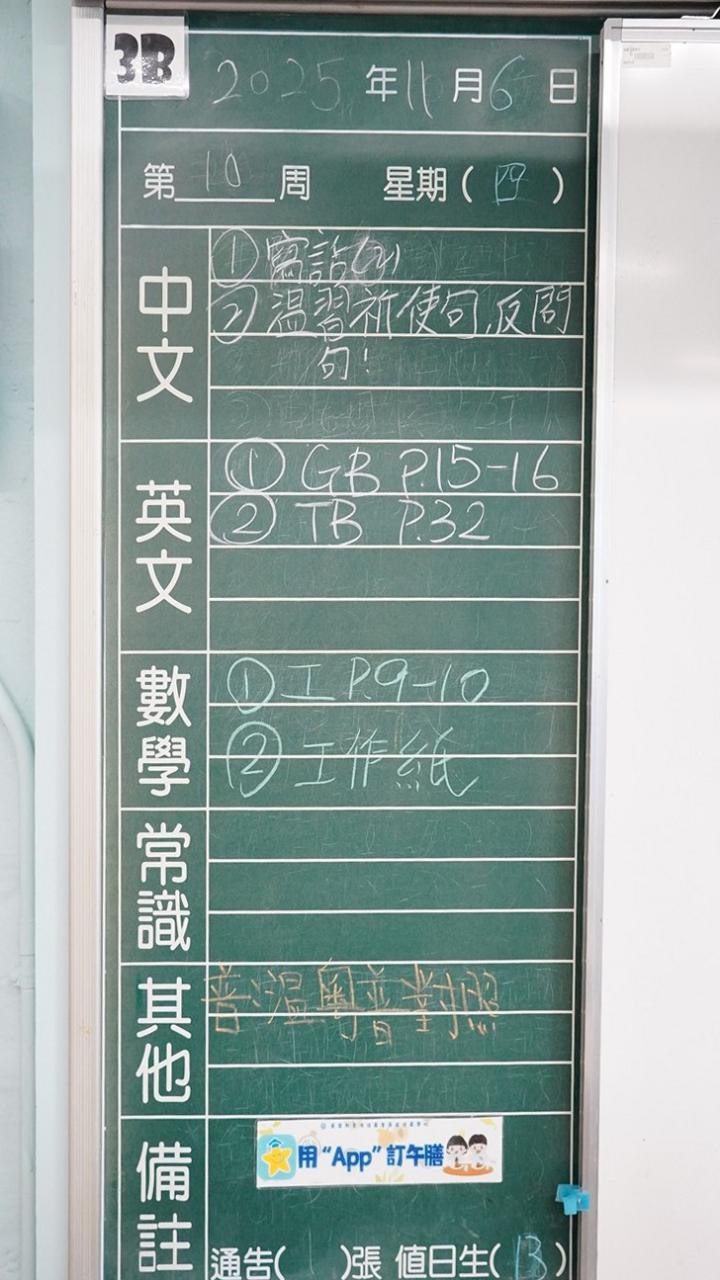 3B
2025年11月6日
第10周 星期(四)
中文
①寫話(2)
②温習祈使句,反問
句!
英文
① GB P.15-16
② TB P.32
數學
①工 P.9-10
②工作紙
常識
其他
普:温粵普對照
備註
用“App”訂午膳
通告(1)張 值日生(13)